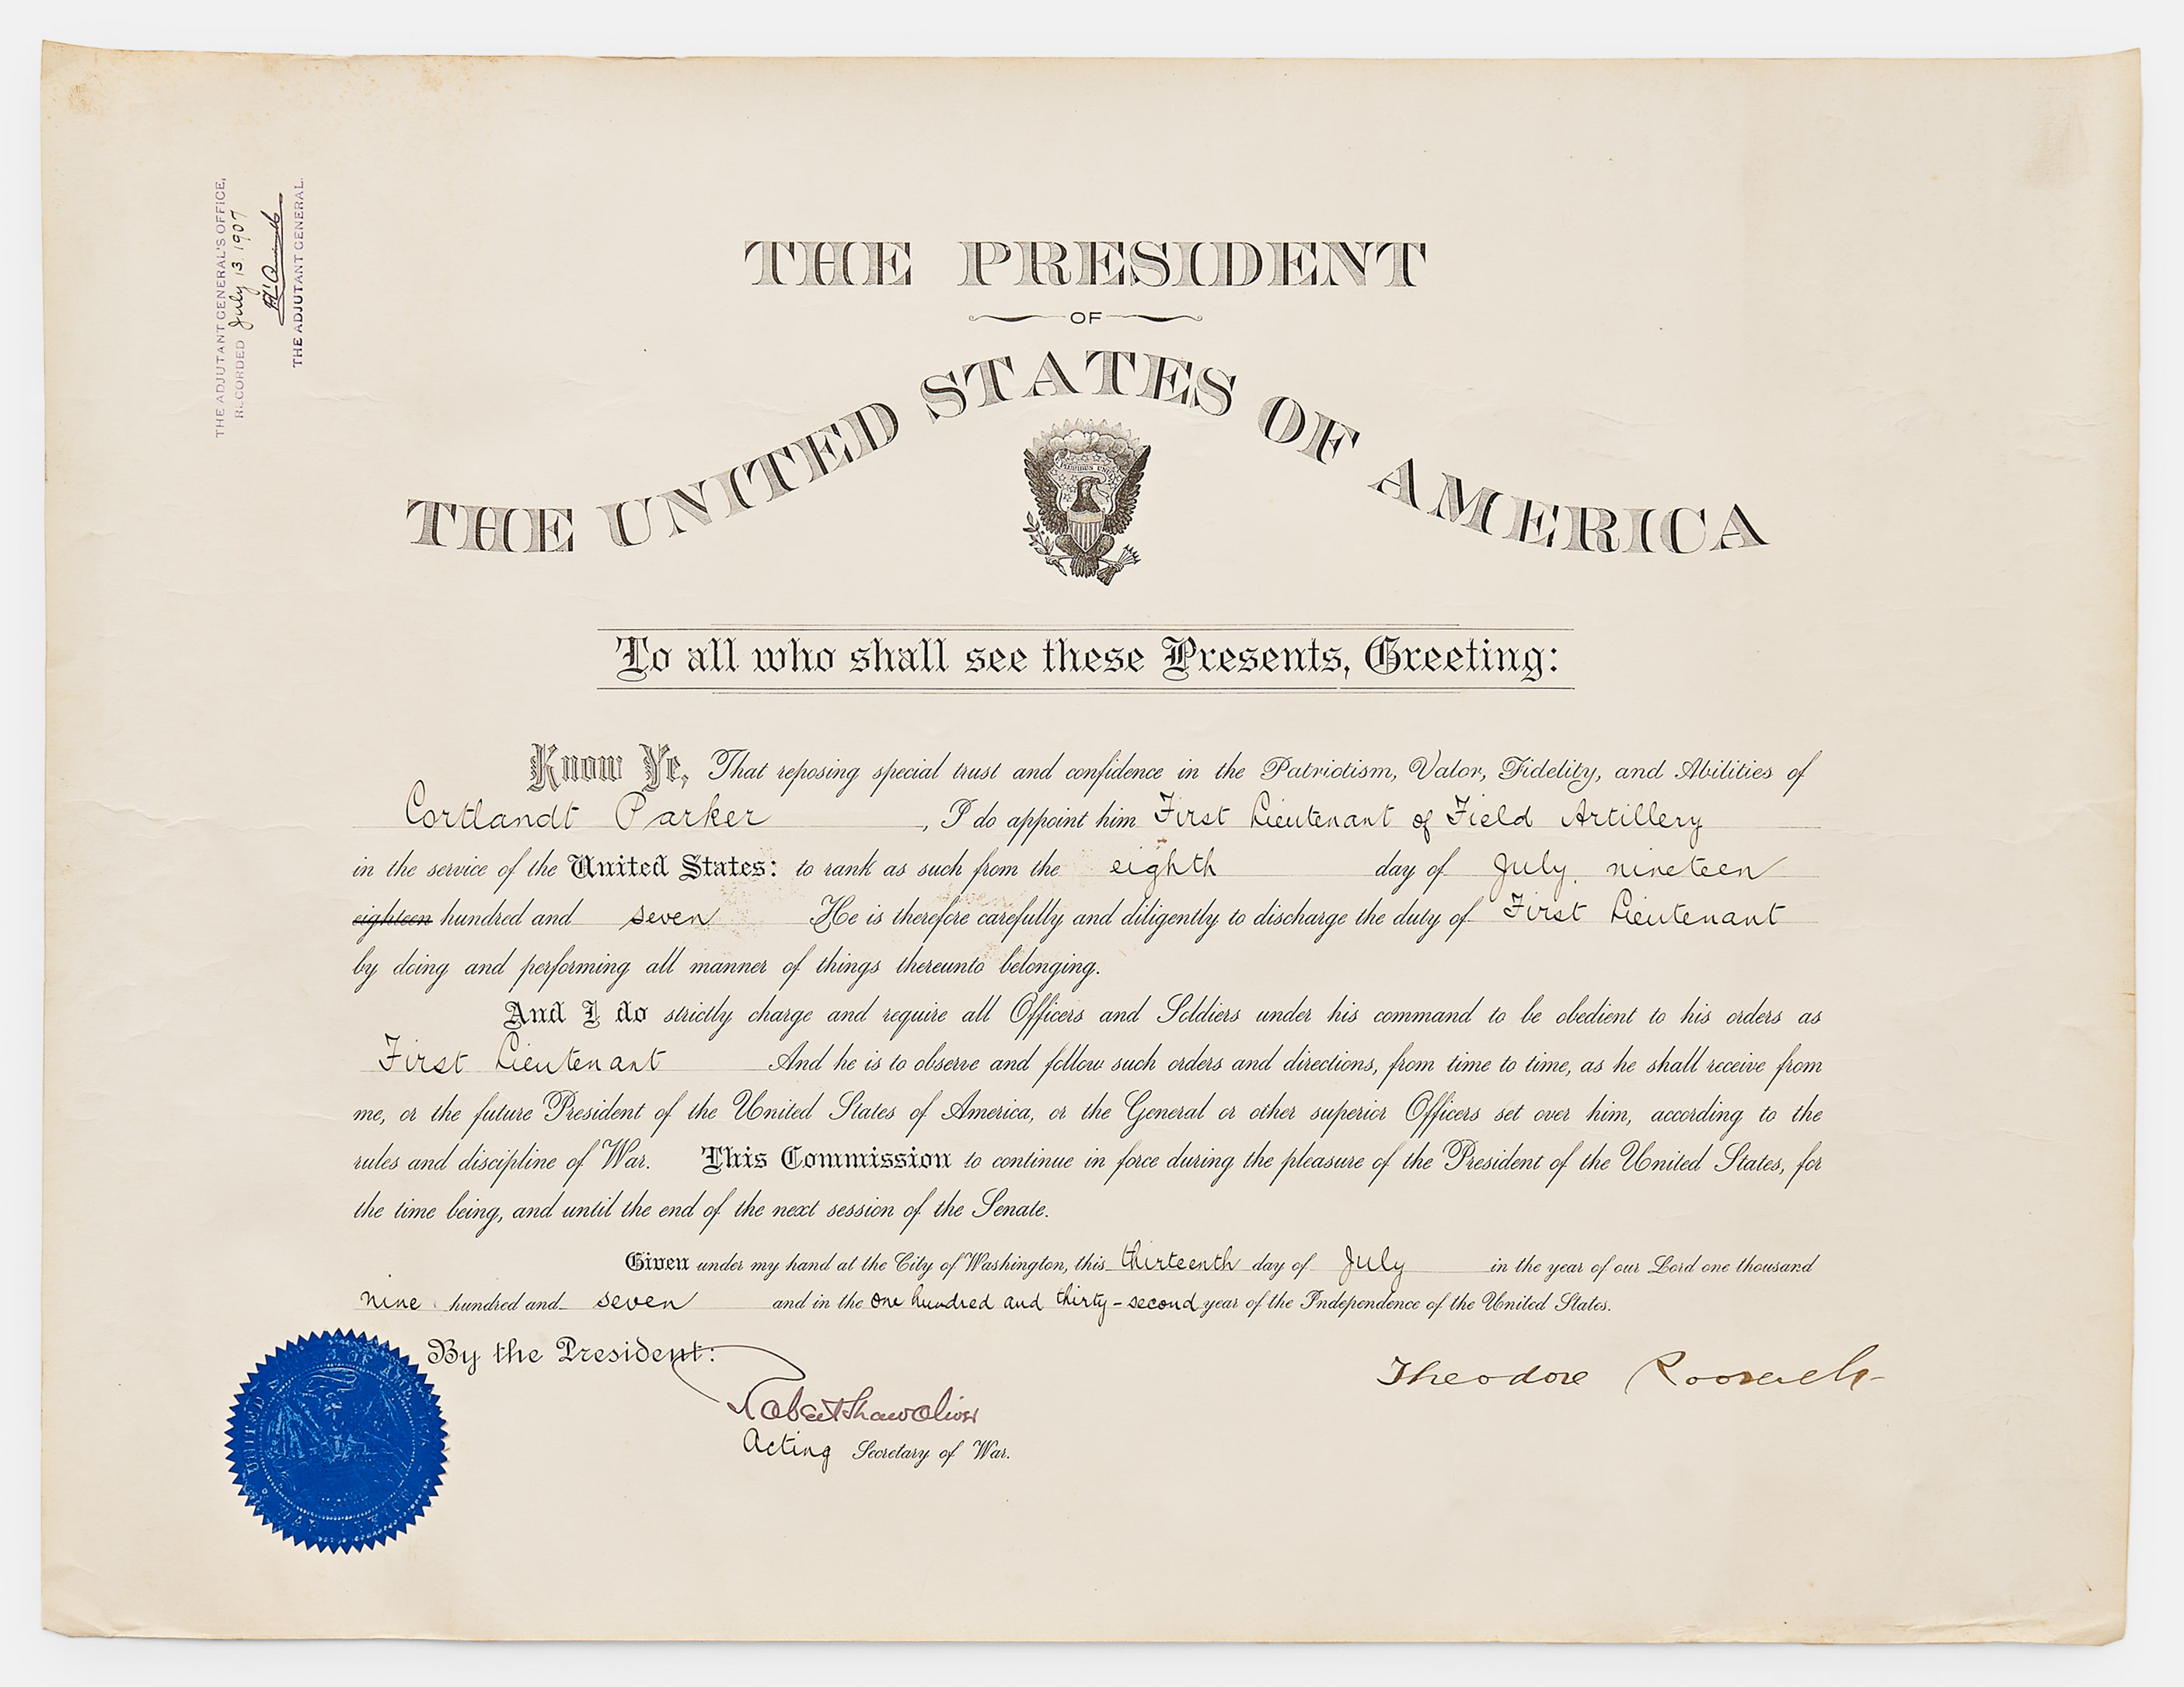 THE ADJUTANT GENERAL'S OFFICE,
RECORDED July 13, 1907
THE ADJUTANT GENERAL.
THE PRESIDENT
OF
THE UNITED STATES OF AMERICA
PLURIBUS UNUM
To all who shall see these Presents, Greeting:
Know Ye, That reposing special trust and confidence in the Patriotism, Valor, Fidelity, and Abilities of
Cortlandt Parker, I do appoint him First Lieutenant of Field Artillery
in the service of the United States: to rank as such from the eighth day of July, nineteen
eighteen hundred and seven He is therefore carefully and diligently to discharge the duty of First Lieutenant
by doing and performing all manner of things thereunto belonging.
And I do strictly charge and require all Officers and Soldiers under his command to be obedient to his orders as
First Lieutenant And he is to observe and follow such orders and directions, from time to time, as he shall receive from
me, or the future President of the United States of America, or the General or other superior Officers set over him, according to the
rules and discipline of War. This Commission to continue in force during the pleasure of the President of the United States, for
the time being, and until the end of the next session of the Senate.
Given under my hand at the City of Washington, this thirteenth day of July in the year of our Lord one thousand
nine hundred and seven and in the one hundred and thirty-second year of the Independence of the United States.
By the President:
Theodore Roosevelt
Robert Shaw Oliver
Acting Secretary of War.